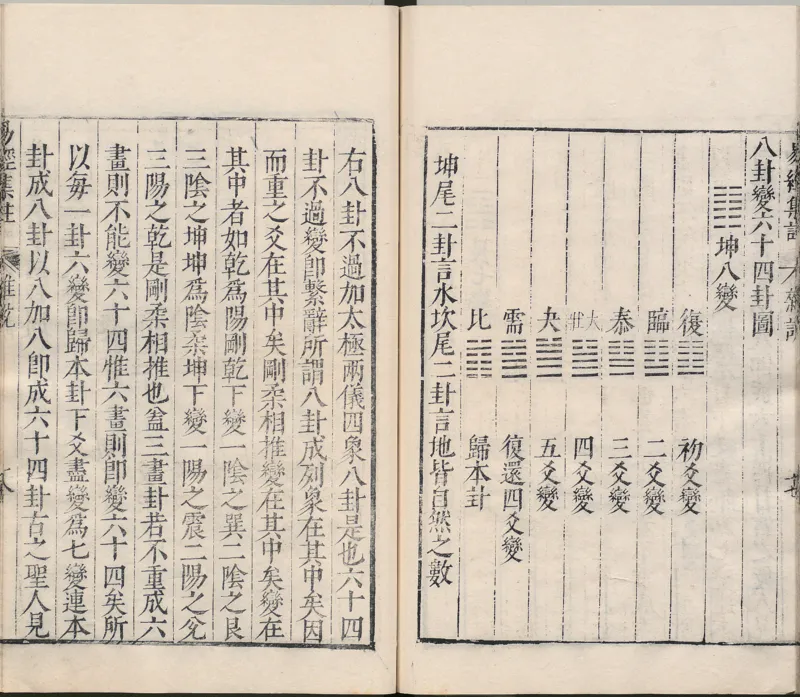 八卦變六十四卦圖
坤八變
復 初爻變
臨 二爻變
泰 三爻變
大壯 四爻變
夬 五爻變
需 復還四爻變
比 歸本卦
坤尾二卦言水坎尾二卦言地皆自然之數
右八卦不過加太極兩儀四象八卦是也六十四
卦不過變即繫辭所謂八卦成列象在其中矣因
而重之爻在其中矣剛柔相推變在其中矣變在
其中者如乾爲陽剛乾下變一陰之巽二陰之艮
三陰之坤坤爲陰柔坤下變一陽之震二陽之兌
三陽之乾是剛柔相推也蓋三畫卦若不重成六
畫則不能變六十四惟六畫則即變六十四矣所
以每一卦六變即歸本卦下爻盡變爲七變連本
卦成八卦以八加八即成六十四卦古之聖人見
易經集註
雜說
八